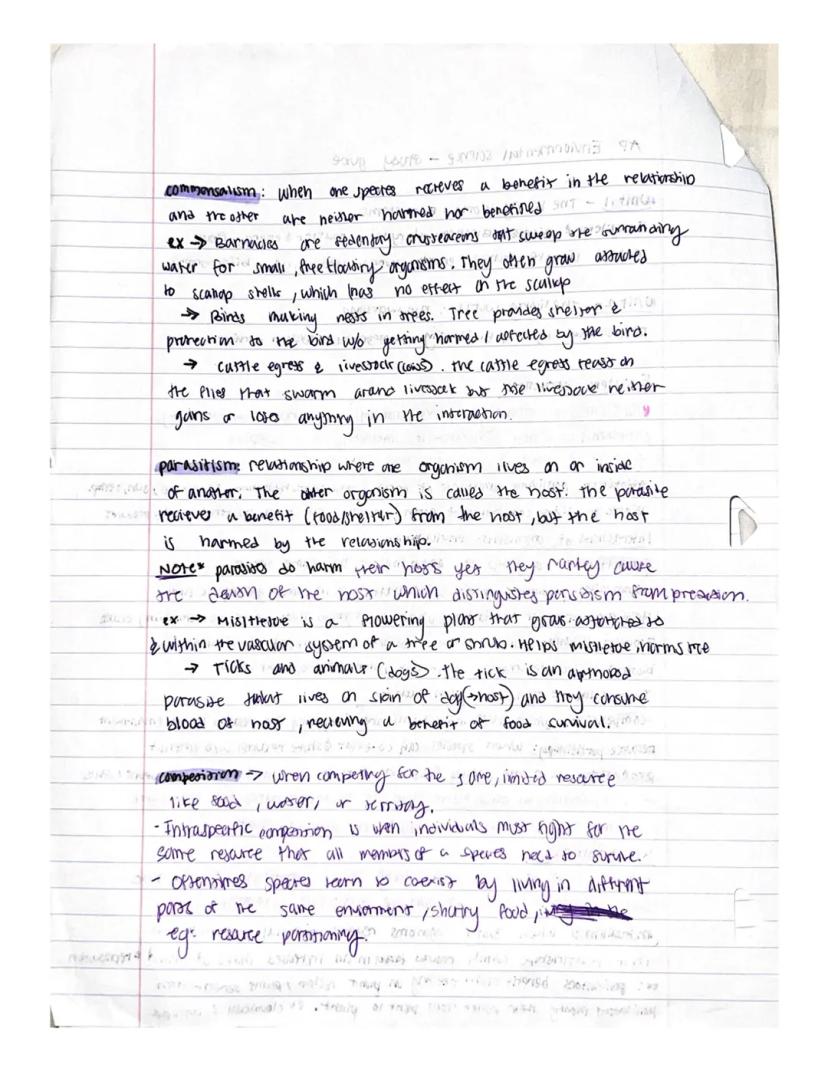 commensalism: when one species recieves a benefit in the relationship
and the other are neither harmed nor benefined
ex → Barnacles are sedentary crustaceans that sweep the surrounding
water for small, free floating organisms. They often grow attached
to scallop shells, which has no effect on the scallop
→ Birds making nests in trees. Tree provides shelter &
protection to the bird w/o getting harmed / affected by the bird.
→ cattle egress & livestock (cows). the cattle egress feast on
the flies that swarm around livestock but the livestock neither
gains or loses anything in the interaction.
parasitism: relationship where one organism lives on or inside
of another. The other organism is called the host. the parasite
recieves a benefit (food/shelter) from the host, but the host
is harmed by the relationship.
NOTE* parasites do harm their hosts yet they rarley cause
the death of the host which distinguishes parasitism from predation.
ex → Misltletoe is a flowering plant that grows attatched to
& within the vascular system of a tree or shrub. Helps mistletoe, harms tree
→ Ticks and animals (dogs). the tick is an arthropod
parasite that lives on skin of dog(→host) and they consume
blood of host, recieving a benefit of food survival.
competition → when competing for the same, limited resource
like food, water, or territory.
- Intraspecific competition is when individuals must fight for the
same resource that all members of a species need to survive.
- Oftentimes species learn to coexist by living in different
parts of the same enviorment, sharing food,
eg: resource partitioning.